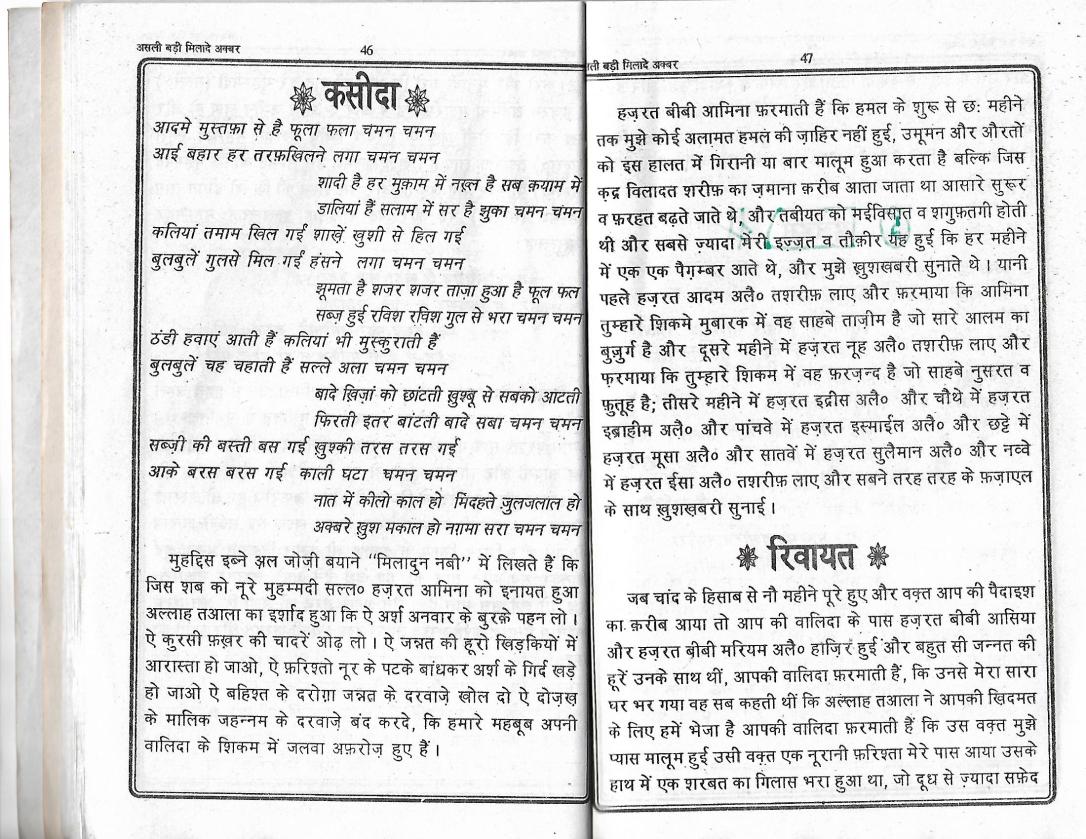 असली बड़ी मिलादे अक्बर 46
कसीदा
आदमे मुस्तफ़ा से है फूला फला चमन चमन
आई बहार हर तरफ़खिलने लगा चमन चमन
शादी है हर मुक़ाम में नख़्ल है सब क़याम में
डालियां हैं सलाम में सर है झुका चमन चमन
कलियां तमाम खिल गईं शाखें ख़ुशी से हिल गईं
बुलबुलें गुलसे मिल गईं हंसने लगा चमन चमन
झूमता है शजर शजर ताज़ा हुआ है फूल फल
सब्ज़ हुई रविश रविश गुल से भरा चमन चमन
ठंडी हवाएं आती हैं कलियां भी मुस्कुराती हैं
बुलबुलें चह चहाती हैं सल्ले अला चमन चमन
बादे ख़िज़ां को छांटती ख़ुश्बू से सबको आंटती
फिरती इतर बांटती बादे सबा चमन चमन
सब्ज़ी की बस्ती बस गई ख़ुश्की तरस तरस गई
आके बरस बरस गई काली घटा चमन चमन
नात में कीलो काल हो मिदहते ज़ुलजलाल हो
अक्बरे ख़ुश मकाल हो नग़मा सरा चमन चमन
मुहद्दिस इब्ने अ़ल जोज़ी बयाने “मिलादुन नबी” में लिखते हैं कि
जिस शब को नूरे मुहम्मदी सल्ल० हज़रत आमिना को इनायत हुआ
अल्लाह तआला का इर्शाद हुआ कि ऐ अर्श अनवार के बुरके़ पहन लो।
ऐ कुरसी फ़ख़र की चादरें ओढ़ लो। ऐ जन्नत की हूरो खिड़कियों में
आरास्ता हो जाओ, ऐ फ़रिश्तो नूर के पटके बांधकर अर्श के गिर्द खड़े
हो जाओ ऐ बहिश्त के दरोग़ा जन्नत के दरवाजे़ खोल दो ऐ दोज़ख़
के मालिक जहन्नम के दरवाजे़ बंद करदे, कि हमारे महबूब अपनी
वालिदा के शिकम में जलवा अफ़रोज़ हुए हैं।
ली बड़ी मिलादे अक्बर 47
हज़रत बीबी आमिना फ़रमाती हैं कि हमल के शुरू से छः महीने
तक मुझे कोई अलामत हमल की ज़ाहिर नहीं हुई, उमूमन और औरतों
को इस हालत में गिरानी या बार मालूम हुआ करता है बल्कि जिस
क़द्र विलादत शरीफ़ का ज़माना क़रीब आता जाता था आसारे सुरूर
व फ़रहत बढ़ते जाते थे, और तबीयत को मईविसात व शगुफ़तगी होती
थी और सबसे ज़्यादा मेरी इज़्ज़त व तौक़ीर यह हुई कि हर महीने
में एक एक पैग़म्बर आते थे, और मुझे ख़ुशखबरी सुनाते थे। यानी
पहले हज़रत आदम अलै० तशरीफ़ लाए और फ़रमाया कि आमिना
तुम्हारे शिकमे मुबारक में वह साहबे ताज़ीम है जो सारे आलम का
बुज़ुर्ग है और दूसरे महीने में हज़रत नूह अलै० तशरीफ़ लाए और
फ़रमाया कि तुम्हारे शिकम में वह फ़रज़न्द है जो साहबे नुसरत व
फ़ुतूह है; तीसरे महीने में हज़रत इद्रीस अलै० और चौथे में हज़रत
इब्राहीम अलै० और पांचवे में हज़रत इस्माईल अलै० और छट्टे में
हज़रत मूसा अलै० और सातवें में हज़रत सुलैमान अलै० और नव्वे
में हज़रत ईसा अलै० तशरीफ़ लाए और सबने तरह तरह के फ़ज़ाएल
के साथ ख़ुशख़बरी सुनाई।
रिवायत
जब चांद के हिसाब से नौ महीने पूरे हुए और वक़्त आप की पैदाइश
का क़रीब आया तो आप की वालिदा के पास हज़रत बीबी आसिया
और हज़रत बीबी मरियम अलै० हाज़िर हुईं और बहुत सी जन्नत की
हूरें उनके साथ थीं, आपकी वालिदा फ़रमाती हैं, कि उनसे मेरा सारा
घर भर गया वह सब कहती थीं कि अल्लाह तआला ने आपकी ख़िदमत
के लिए हमें भेजा है आपकी वालिदा फ़रमाती हैं कि उस वक्त मुझे
प्यास मालूम हुई उसी वक़्त एक नूरानी फ़रिश्ता मेरे पास आया उसके
हाथ में एक शरबत का गिलास भरा हुआ था, जो दूध से ज़्यादा सफ़ेद